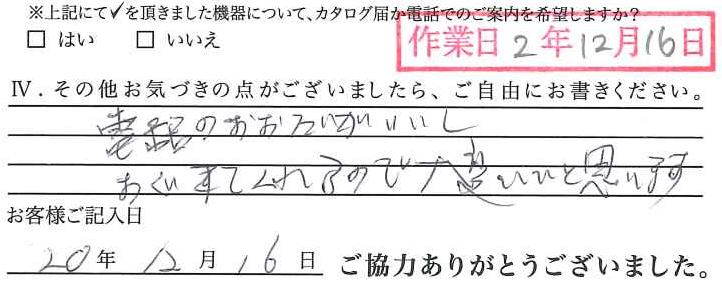 ※上記にて✓を頂きました機器について、カタログ届か電話でのご案内を希望しますか?
□ はい □ いいえ
作業日 2年12月16日
Ⅳ．その他お気づきの点がございましたら、ご自由にお書きください。
電話のおおたいがいいし
すてくれるので大変いいと思います
お客様ご記入日
20年 12月 16日 ご協力ありがとうございました。